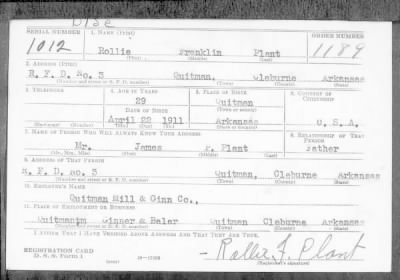 Disc
SERIAL NUMBER 1. NAME (Print) ORDER NUMBER
1012 Rollie Franklin Plant 1189
(First) (Middle) (Last)
2. ADDRESS (Print)
R. F. D. No. 3 Quitman, Cleburne Arkansas
(Number and street or R. F. D. number) (Town) (County) (State)
3. TELEPHONE 4. AGE IN YEARS 5. PLACE OF BIRTH 6. COUNTRY OF CITIZENSHIP
29 Quitman
DATE OF BIRTH (Town or county)
April 22 1911 Arkansas U. S. A.
(Exchange) (No.) (Mo.) (Day) (Yr.) (State or country)
7. NAME OF PERSON WHO WILL ALWAYS KNOW YOUR ADDRESS 8. RELATIONSHIP OF THAT PERSON
Mr. James Plant Father
(Mr., Mrs., Miss) (First) (Middle) (Last)
9. ADDRESS OF THAT PERSON
R. F. D. no. 3 Quitman, Cleburne Arkansas
(Number and street or R. F. D. number) (Town) (County) (State)
10. EMPLOYER'S NAME
Quitman Mill & Ginn Co.,
11. PLACE OF EMPLOYMENT OR BUSINESS
Quitmantm Ginner & Baler Quitman Cleburne Arkansas
(Number and street or R. F. D. number) (Town) (County) (State)
I AFFIRM THAT I HAVE VERIFIED ABOVE ANSWERS AND THAT THEY ARE TRUE.
REGISTRATION CARD
D. S. S. Form 1
(over) Rollie F. Plant
(Registrant's signature)